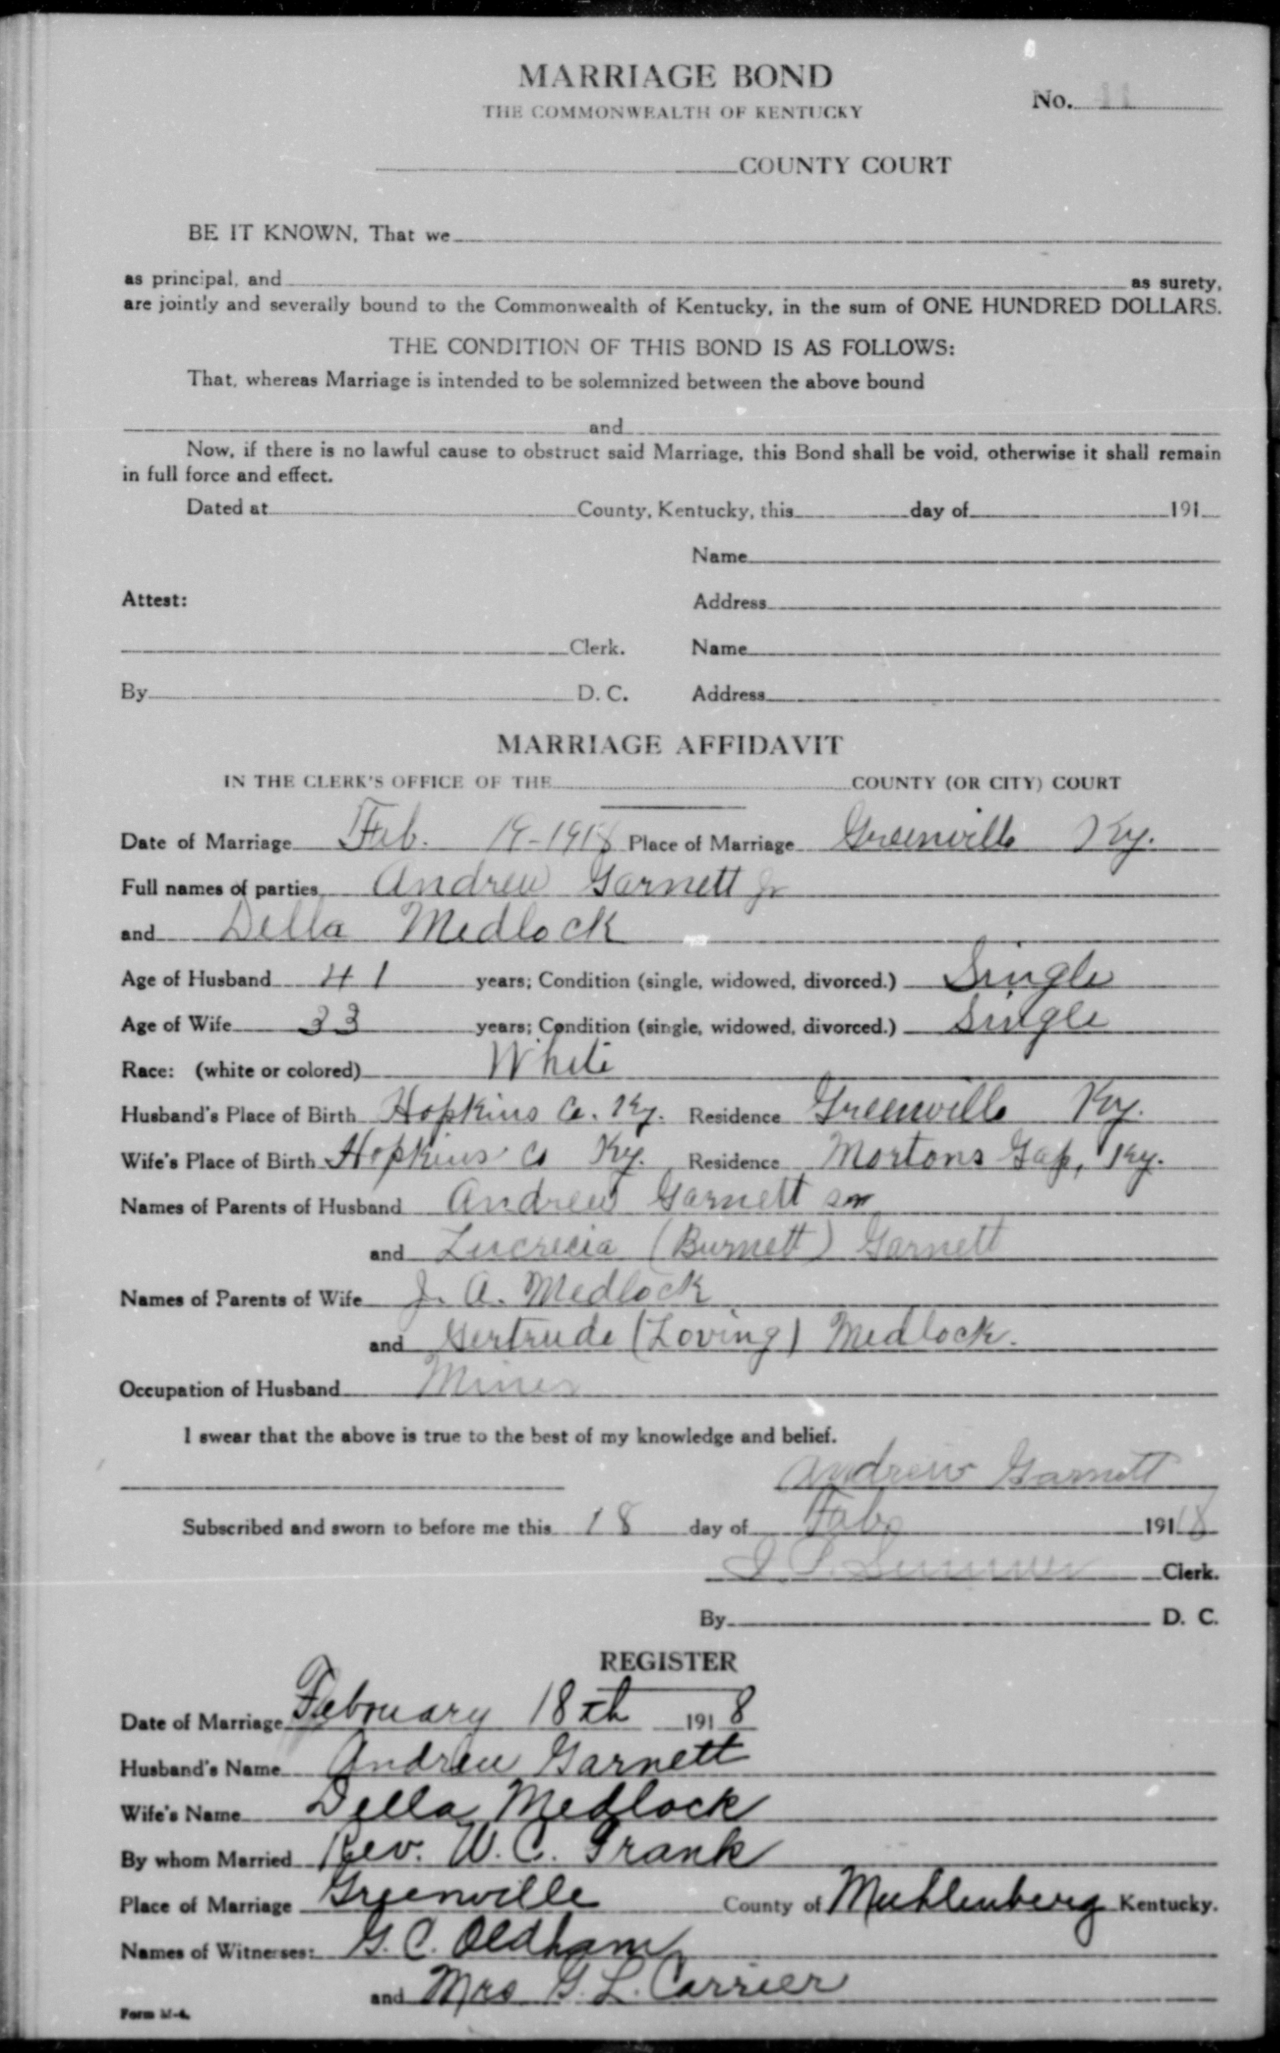 MARRIAGE BOND
No. 11
THE COMMONWEALTH OF KENTUCKY
COUNTY COURT
BE IT KNOWN, That we
as principal, and as surety,
are jointly and severally bound to the Commonwealth of Kentucky, in the sum of ONE HUNDRED DOLLARS.
THE CONDITION OF THIS BOND IS AS FOLLOWS:
That, whereas Marriage is intended to be solemnized between the above bound
and
Now, if there is no lawful cause to obstruct said Marriage, this Bond shall be void, otherwise it shall remain
in full force and effect.
Dated at County, Kentucky, this day of 191
Name
Attest: Address
Clerk. Name
By D. C. Address
MARRIAGE AFFIDAVIT
IN THE CLERK'S OFFICE OF THE COUNTY (OR CITY) COURT
Date of Marriage Feb. 19-1918 Place of Marriage Greenville Ky.
Full names of parties Andrew Garnett Jr
and Della Medlock
Age of Husband 41 years; Condition (single, widowed, divorced.) Single
Age of Wife 33 years; Condition (single, widowed, divorced.) Single
Race: (white or colored) White
Husband's Place of Birth Hopkins Co. Ky. Residence Greenville Ky.
Wife's Place of Birth Hopkins Co Ky. Residence Mortons Gap, Ky.
Names of Parents of Husband Andrew Garnett
and Lucrecia (Burnett) Garnett
Names of Parents of Wife J. A. Medlock
and Gertrude (Loving) Medlock.
Occupation of Husband Miner
I swear that the above is true to the best of my knowledge and belief.
Andrew Garnett
Subscribed and sworn to before me this 18 day of Feb 19118
Clerk.
By D. C.
REGISTER
Date of Marriage February 18th 1918
Husband's Name Andrew Garnett
Wife's Name Della Medlock
By whom Married Rev. W. C. Frank
Place of Marriage Greenville County of Muhlenberg Kentucky.
Names of Witnesses: G. C. Oldham
and Mrs G. L. Carrier
Form M-4.